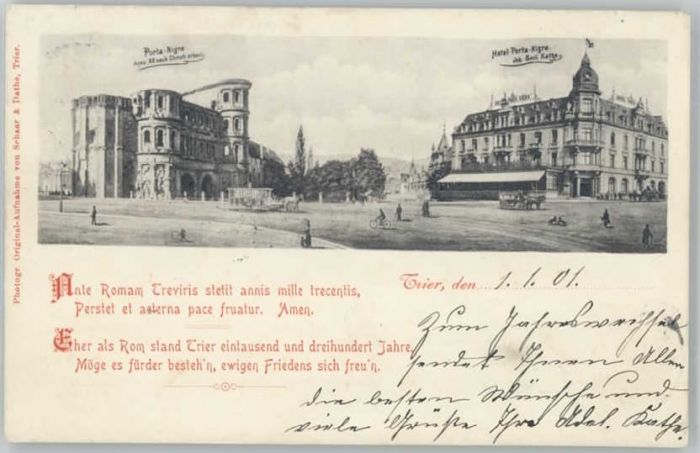 Porta-Nigra
Hotel-Porta-Nigra
Photogr. Original-Aufnahme von Schaar & Dathe, Trier.
Ante Romam Treviris stetit annis mille trecentis,
Perstet et aeterna pace fruatur. Amen.
Eher als Rom stand Trier eintausend und dreihundert Jahre,
Möge es fürder besteh'n, ewigen Friedens sich freu'n.
Trier, den 1.1.01.
Zum Jahreswechsel
sendet Ihnen Allen
die besten Wünsche und
viele Grüße Ihre Adel. Kathe.